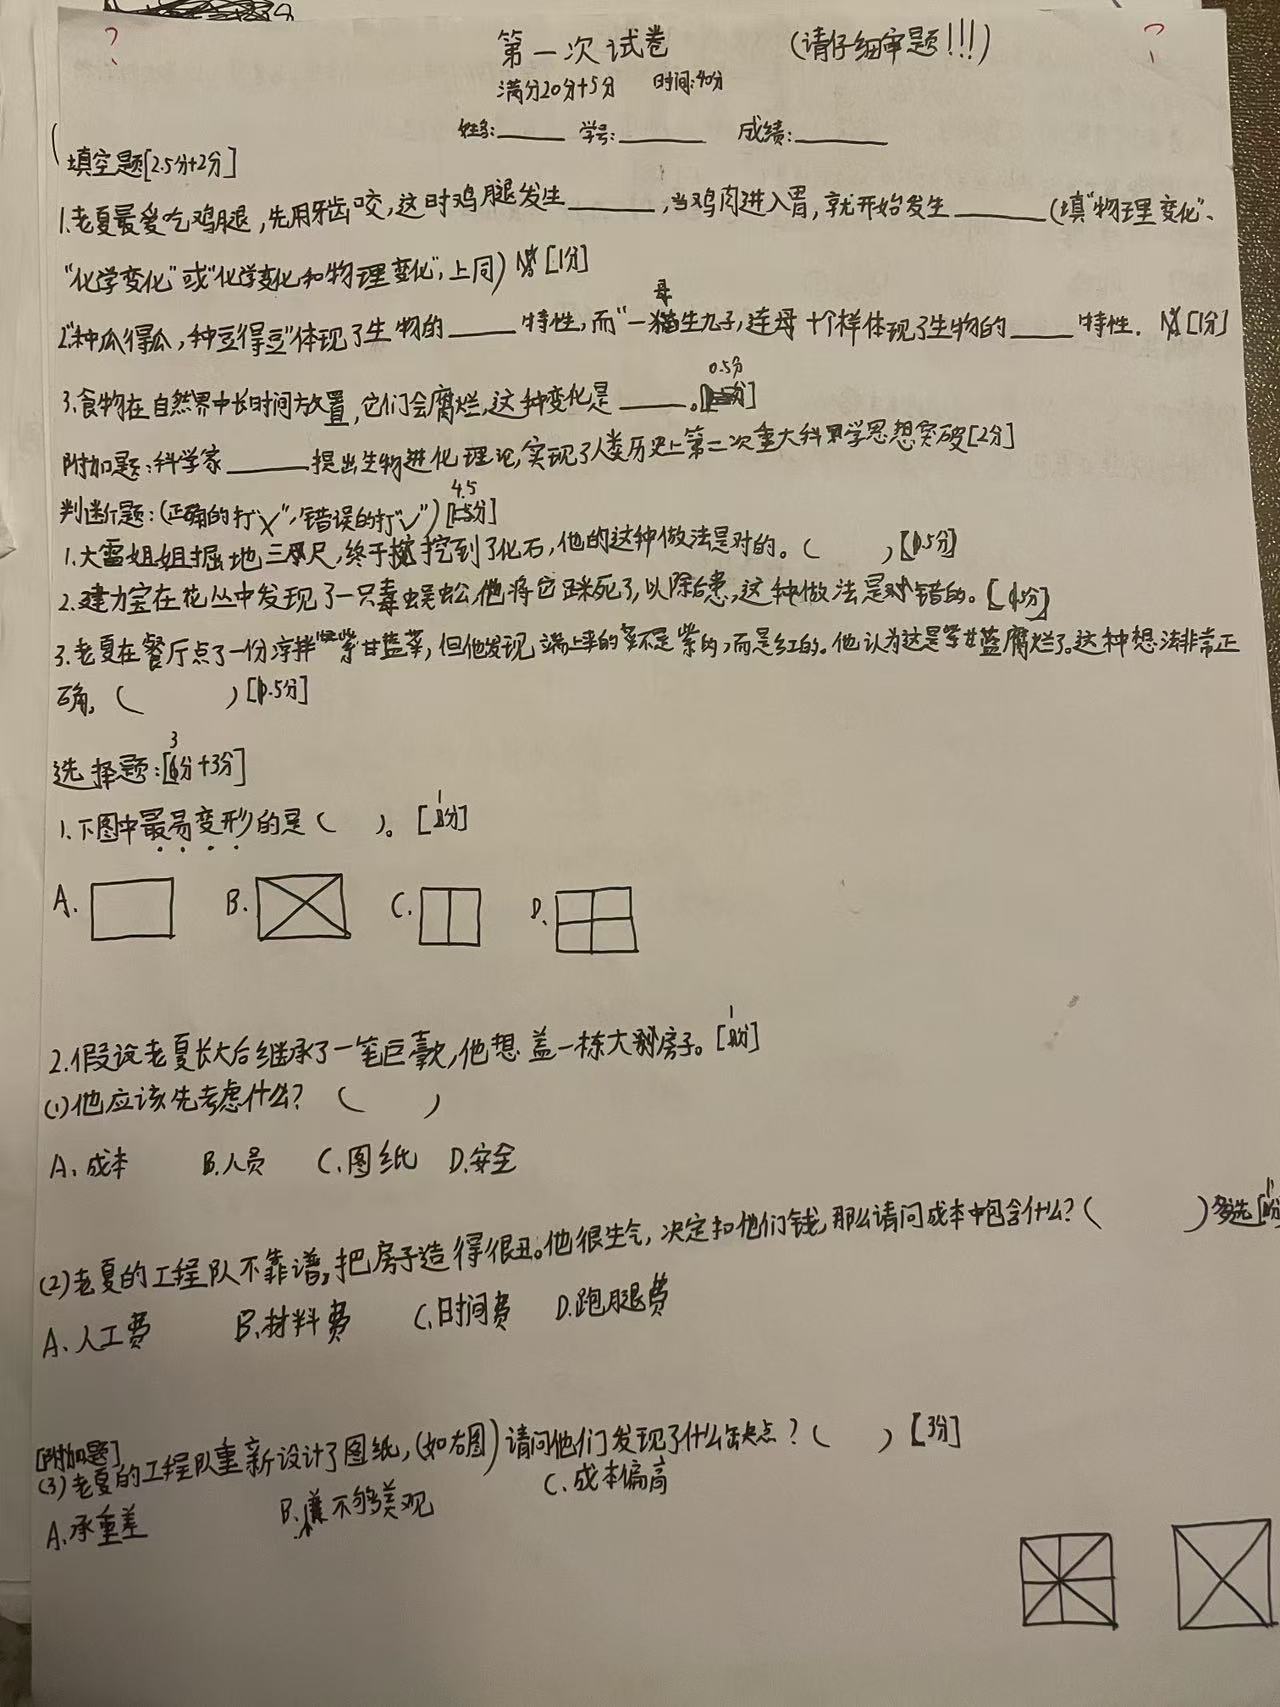 第一次试卷 (请仔细审题!!!)
满分20分+5分 时间:40分
姓名:____ 学号:____ 成绩:____
填空题[2.5分+2分]
1.老夏最爱吃鸡腿,先用牙齿咬,这时鸡腿发生____,当鸡肉进入胃,就开始发生____(填"物理变化"、
"化学变化"或"化学变化和物理变化",上同) [1分]
2."种瓜得瓜,种豆得豆"体现了生物的____特性,而"一母猫生九子,连母十个样体现了生物的____特性. [1分]
3.食物在自然界中长时间放置,它们会腐烂,这种变化是____。[0.5分]
附加题:科学家____提出生物进化理论,实现了人类历史上第二次重大科学思想突破[2分]
判断题:(正确的打"X",错误的打"√")[4.5分]
1.大雷姐姐掘地三尺,终于挖到了化石,他的这种做法是对的。( )[1.5分]
2.建力宝在花丛中发现了一只毒蜈蚣,他将它踩死了,以除后患,这种做法是错的。[1.5分]
3.老夏在餐厅点了一份凉拌紫甘蓝菜,但他发现端上来的菜不是紫的,而是红的。他认为这是紫甘蓝腐烂了。这种想法非常正
确。( )[1.5分]
选择题:[3分+3分]
1.下图中最易变形的是( )。[1分]
A. B. C. D.
2.假设老夏长大后继承了一笔巨款,他想盖一栋大房子。[1分]
(1)他应该先考虑什么?( )
A.成本 B.人员 C.图纸 D.安全
(2)老夏的工程队不靠谱,把房子造得很丑。他很生气,决定扣他们钱,那么请问成本中包含什么?( )多选[1分
A.人工费 B.材料费 C.时间费 D.跑腿费
[附加题]
(3)老夏的工程队重新设计了图纸,(如右图)请问他们发现了什么缺点?( )[3分]
A.承重差 B.不够美观 C.成本偏高